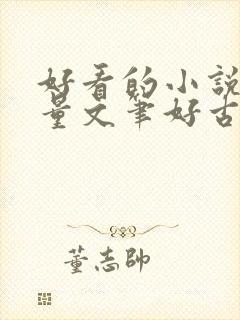 好看的小說
量文筆好古
董志帥